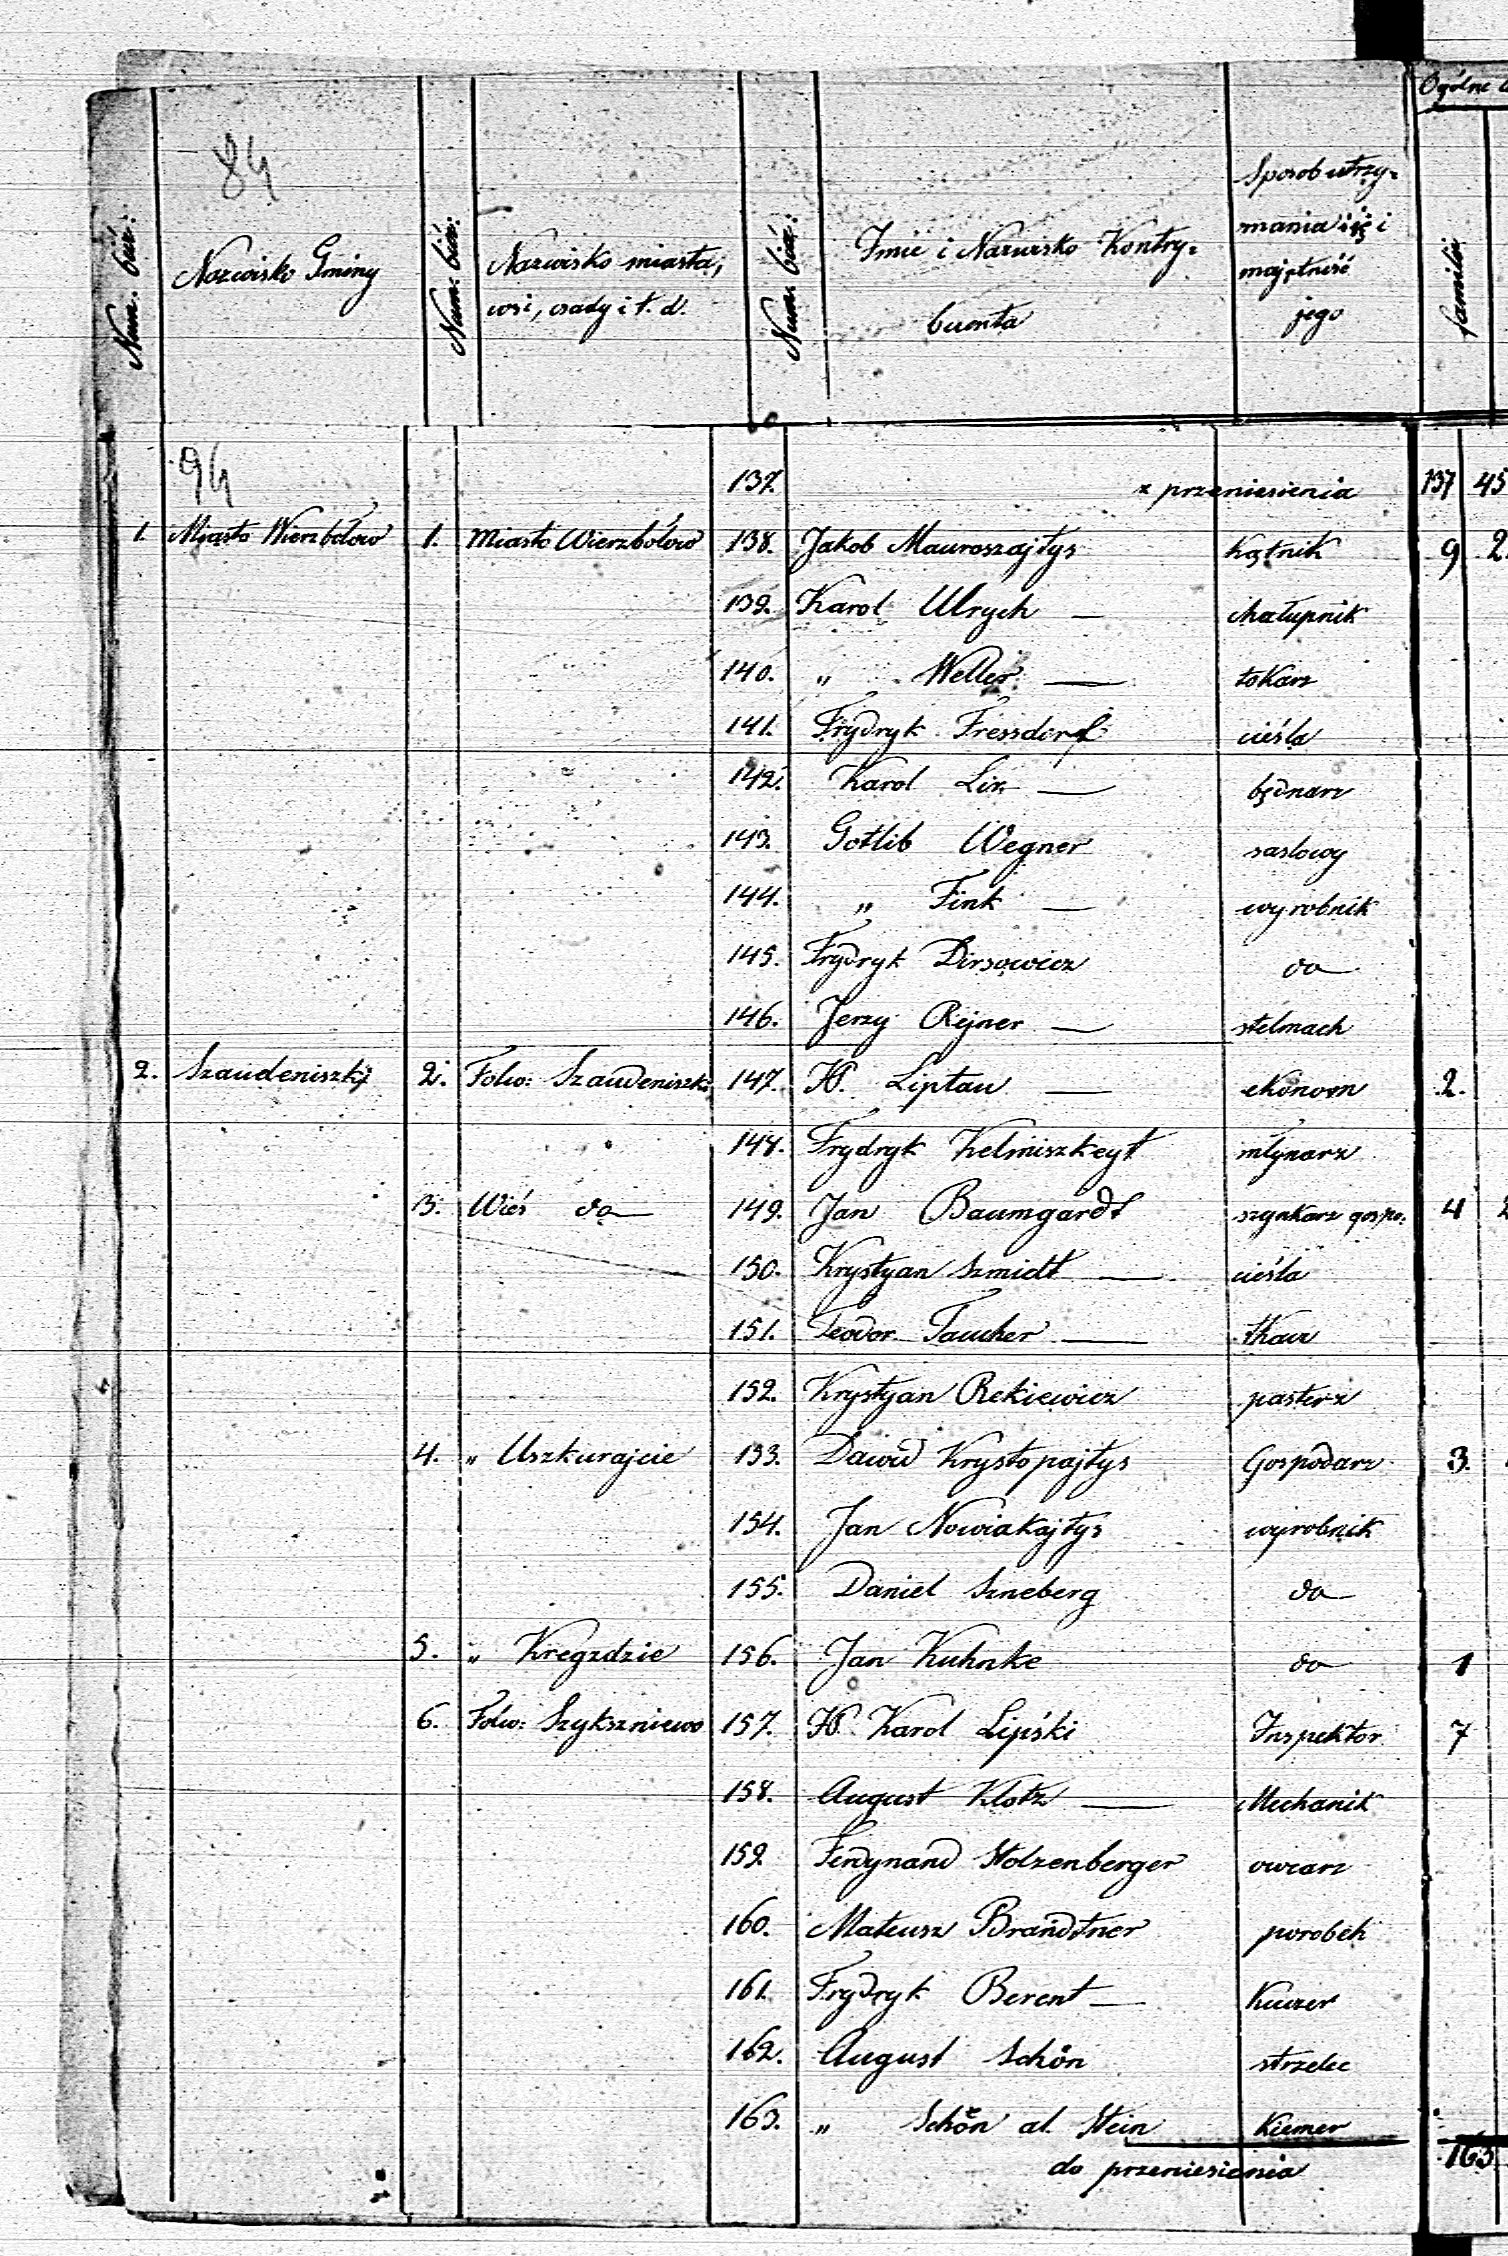 Ogólne
84
Num. bież: Nazwisko Gminy Num: bież: Nazwisko miasta, wsi, osady i t. d. Num: bież: Imie i Nazwisko Kontry= buenta Sposob utrzy= mania się i majętność jego familii
94
137. z przeniesienia 137 45
1. Miasto Wierzbołow 1. Miasto Wierzbołow 138. Jakob Mauroszajtys Kątnik 9 2
139. Karol Ulrych — chałupnik
140. „ Weller — tokarz
141. Frydryk Fressdorf cieśla
142. Karol Lix — będnarz
143. Gotlib Wegner
144. „ Fink — wyrobnik
145. Frydryk Dirsowicz do
146. Jerzy Rejner — stelmach
2. Szaudeniszki 2. Folw: Szaudeniszki 147. W. Liptau — ekonom 2.
148. Frydryk Kelmiszkeyt młynarz
3. Wieś do 149. Jan Baumgardt szynkarz gospo. 4 2
150. Krystyan Szmidt — cieśla
151. Teodor Taucher — tkacz
152. Krystyan Rekiewicz pasterz
4. „ Uszkurajcie 153. Dawid Krystopajtys Gospodarz 3.
154. Jan Nowiakajtys wyrobnik
155. Daniel Szneberg do
5. „ Kregzdzie 156. Jan Kuhnke do 1
6. Folw: Szykszniewo 157. W. Karol Lipski Inspektor 7
158. August Klotz — Mechanik
159. Ferdynand Stolzenberger owczarz
160. Mateusz Brandtner porobek
161. Frydryk Berent — Kuczer
162. August Schön strzelec
163. „ Schön al. Stein Kiemer
do przeniesienia 163